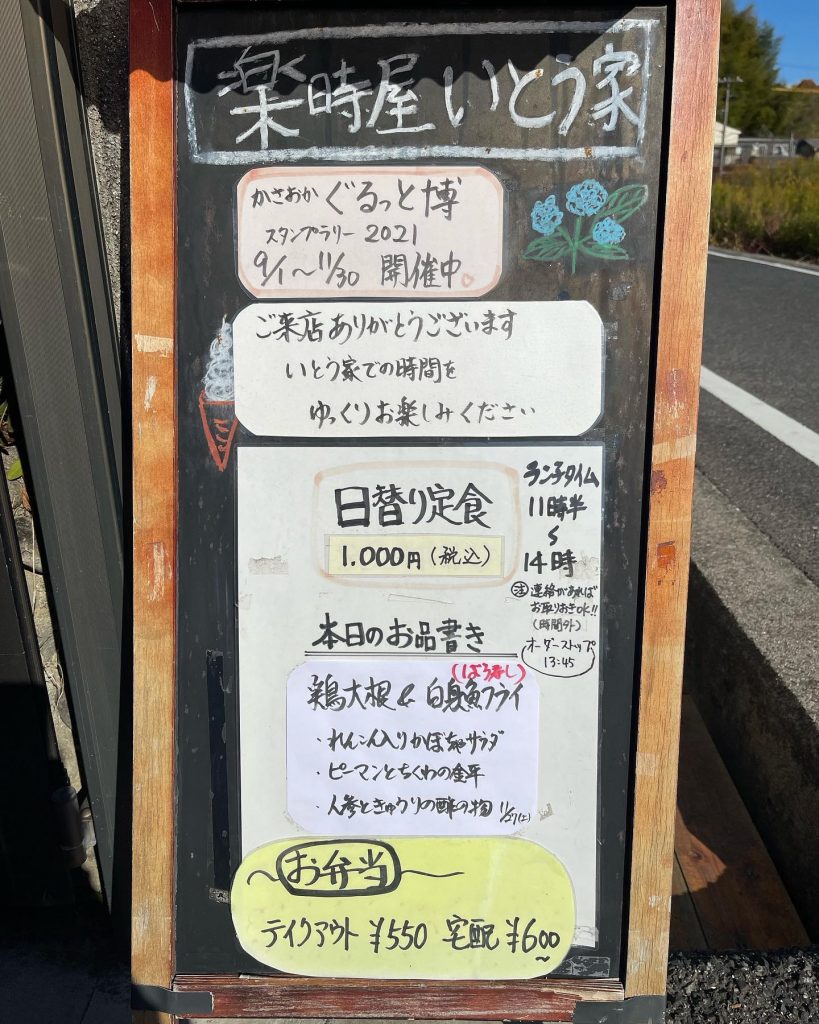 楽時屋 いとう家
かさおか ぐるっと博
スタンプラリー 2021
9/1〜11/30 開催中
ご来店ありがとうございます
いとう家での時間を
ゆっくりお楽しみください
日替り定食
1.000円(税込)
ランチタイム
11時半
〜
14時
注 連絡があれば
お取りおきOK!!
(時間外)
オーダーストップ
13:45
本日のお品書き
(骨なし)
鶏大根 & 白身魚フライ
・れんこん入りかぼちゃサラダ
・ピーマンとちくわの金平
・人参ときゅうりの酢の物 11/27(土)
〜お弁当〜
テイクアウト ¥550 宅配 ¥600〜